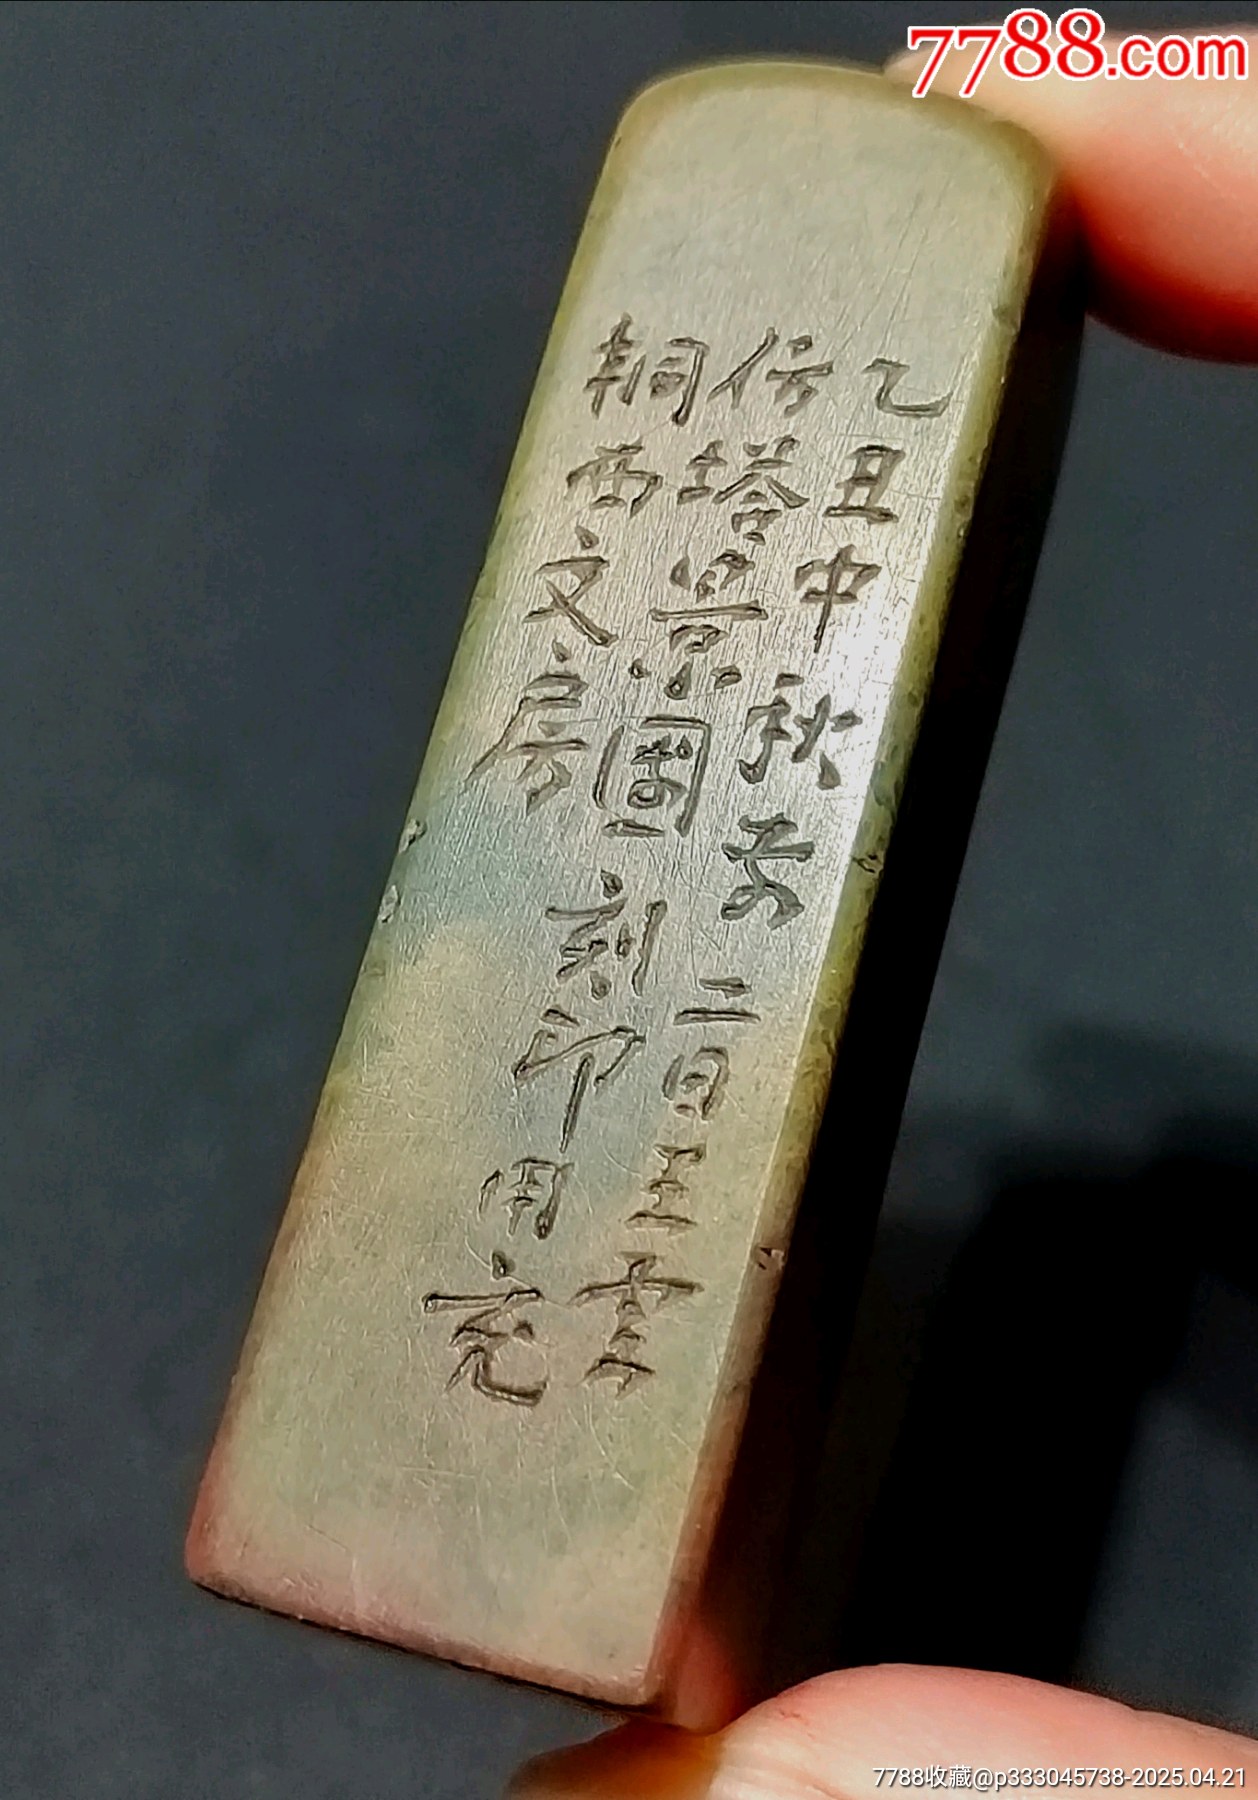 7788.com
乙丑中秋二日王雲
仿塔景圖刻印用充
西文房
7788收藏@p333045738-2025.04.21